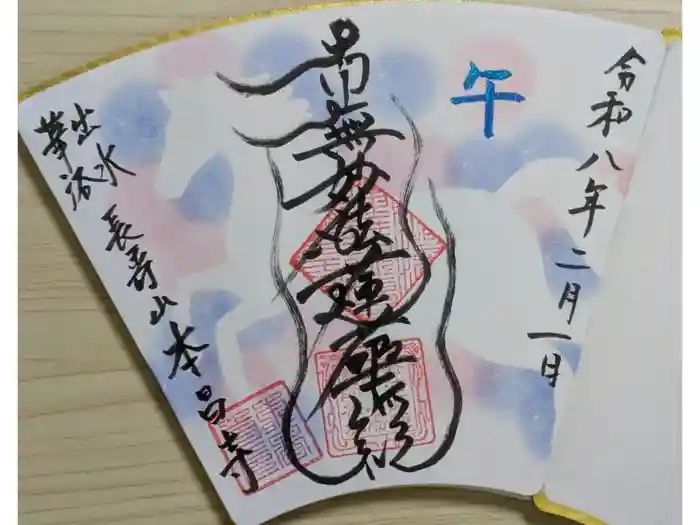 令和八年二月一日
午
南無妙法蓮華経
出水
華洛
長壽山本昌寺